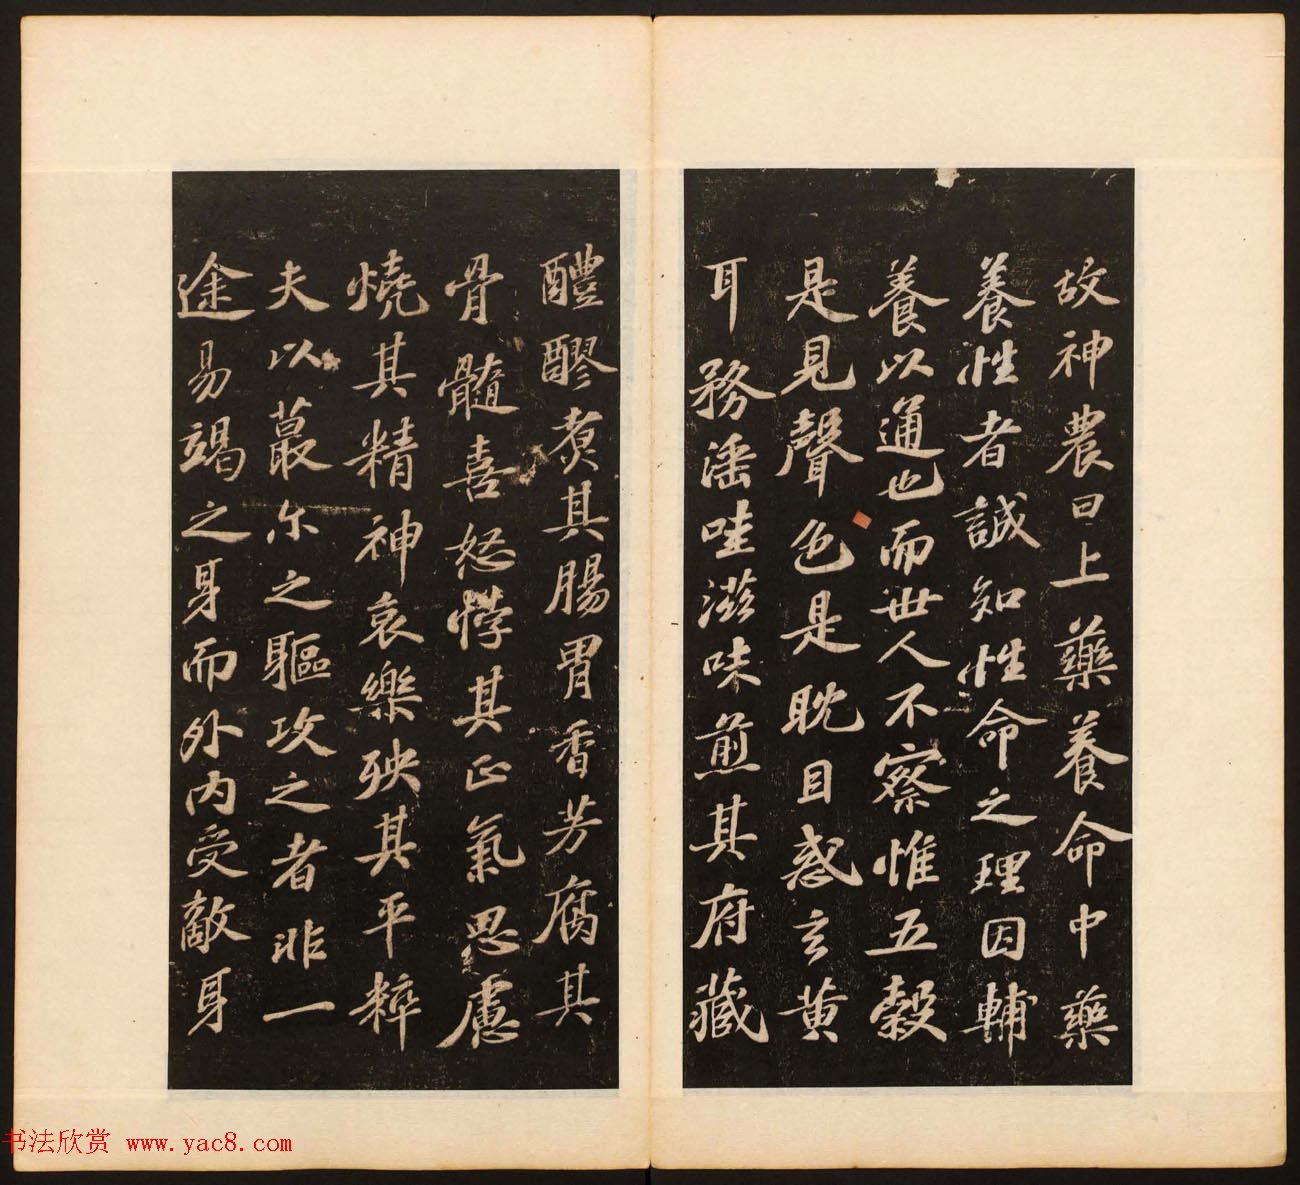 故神農曰上藥養命中藥
養性者誠知性命之理因輔
養以通也而世人不察惟五穀
是見聲色是耽目惑玄黃
耳務滛哇滋味煎其府藏
醴醪煑其腸胃香芳腐其
骨髓喜怒悖其正氣思慮
燒其精神哀樂殃其平粹
夫以蕞尓之軀攻之者非一
途易竭之身而外內受敵身
书法欣赏 www.yac8.com